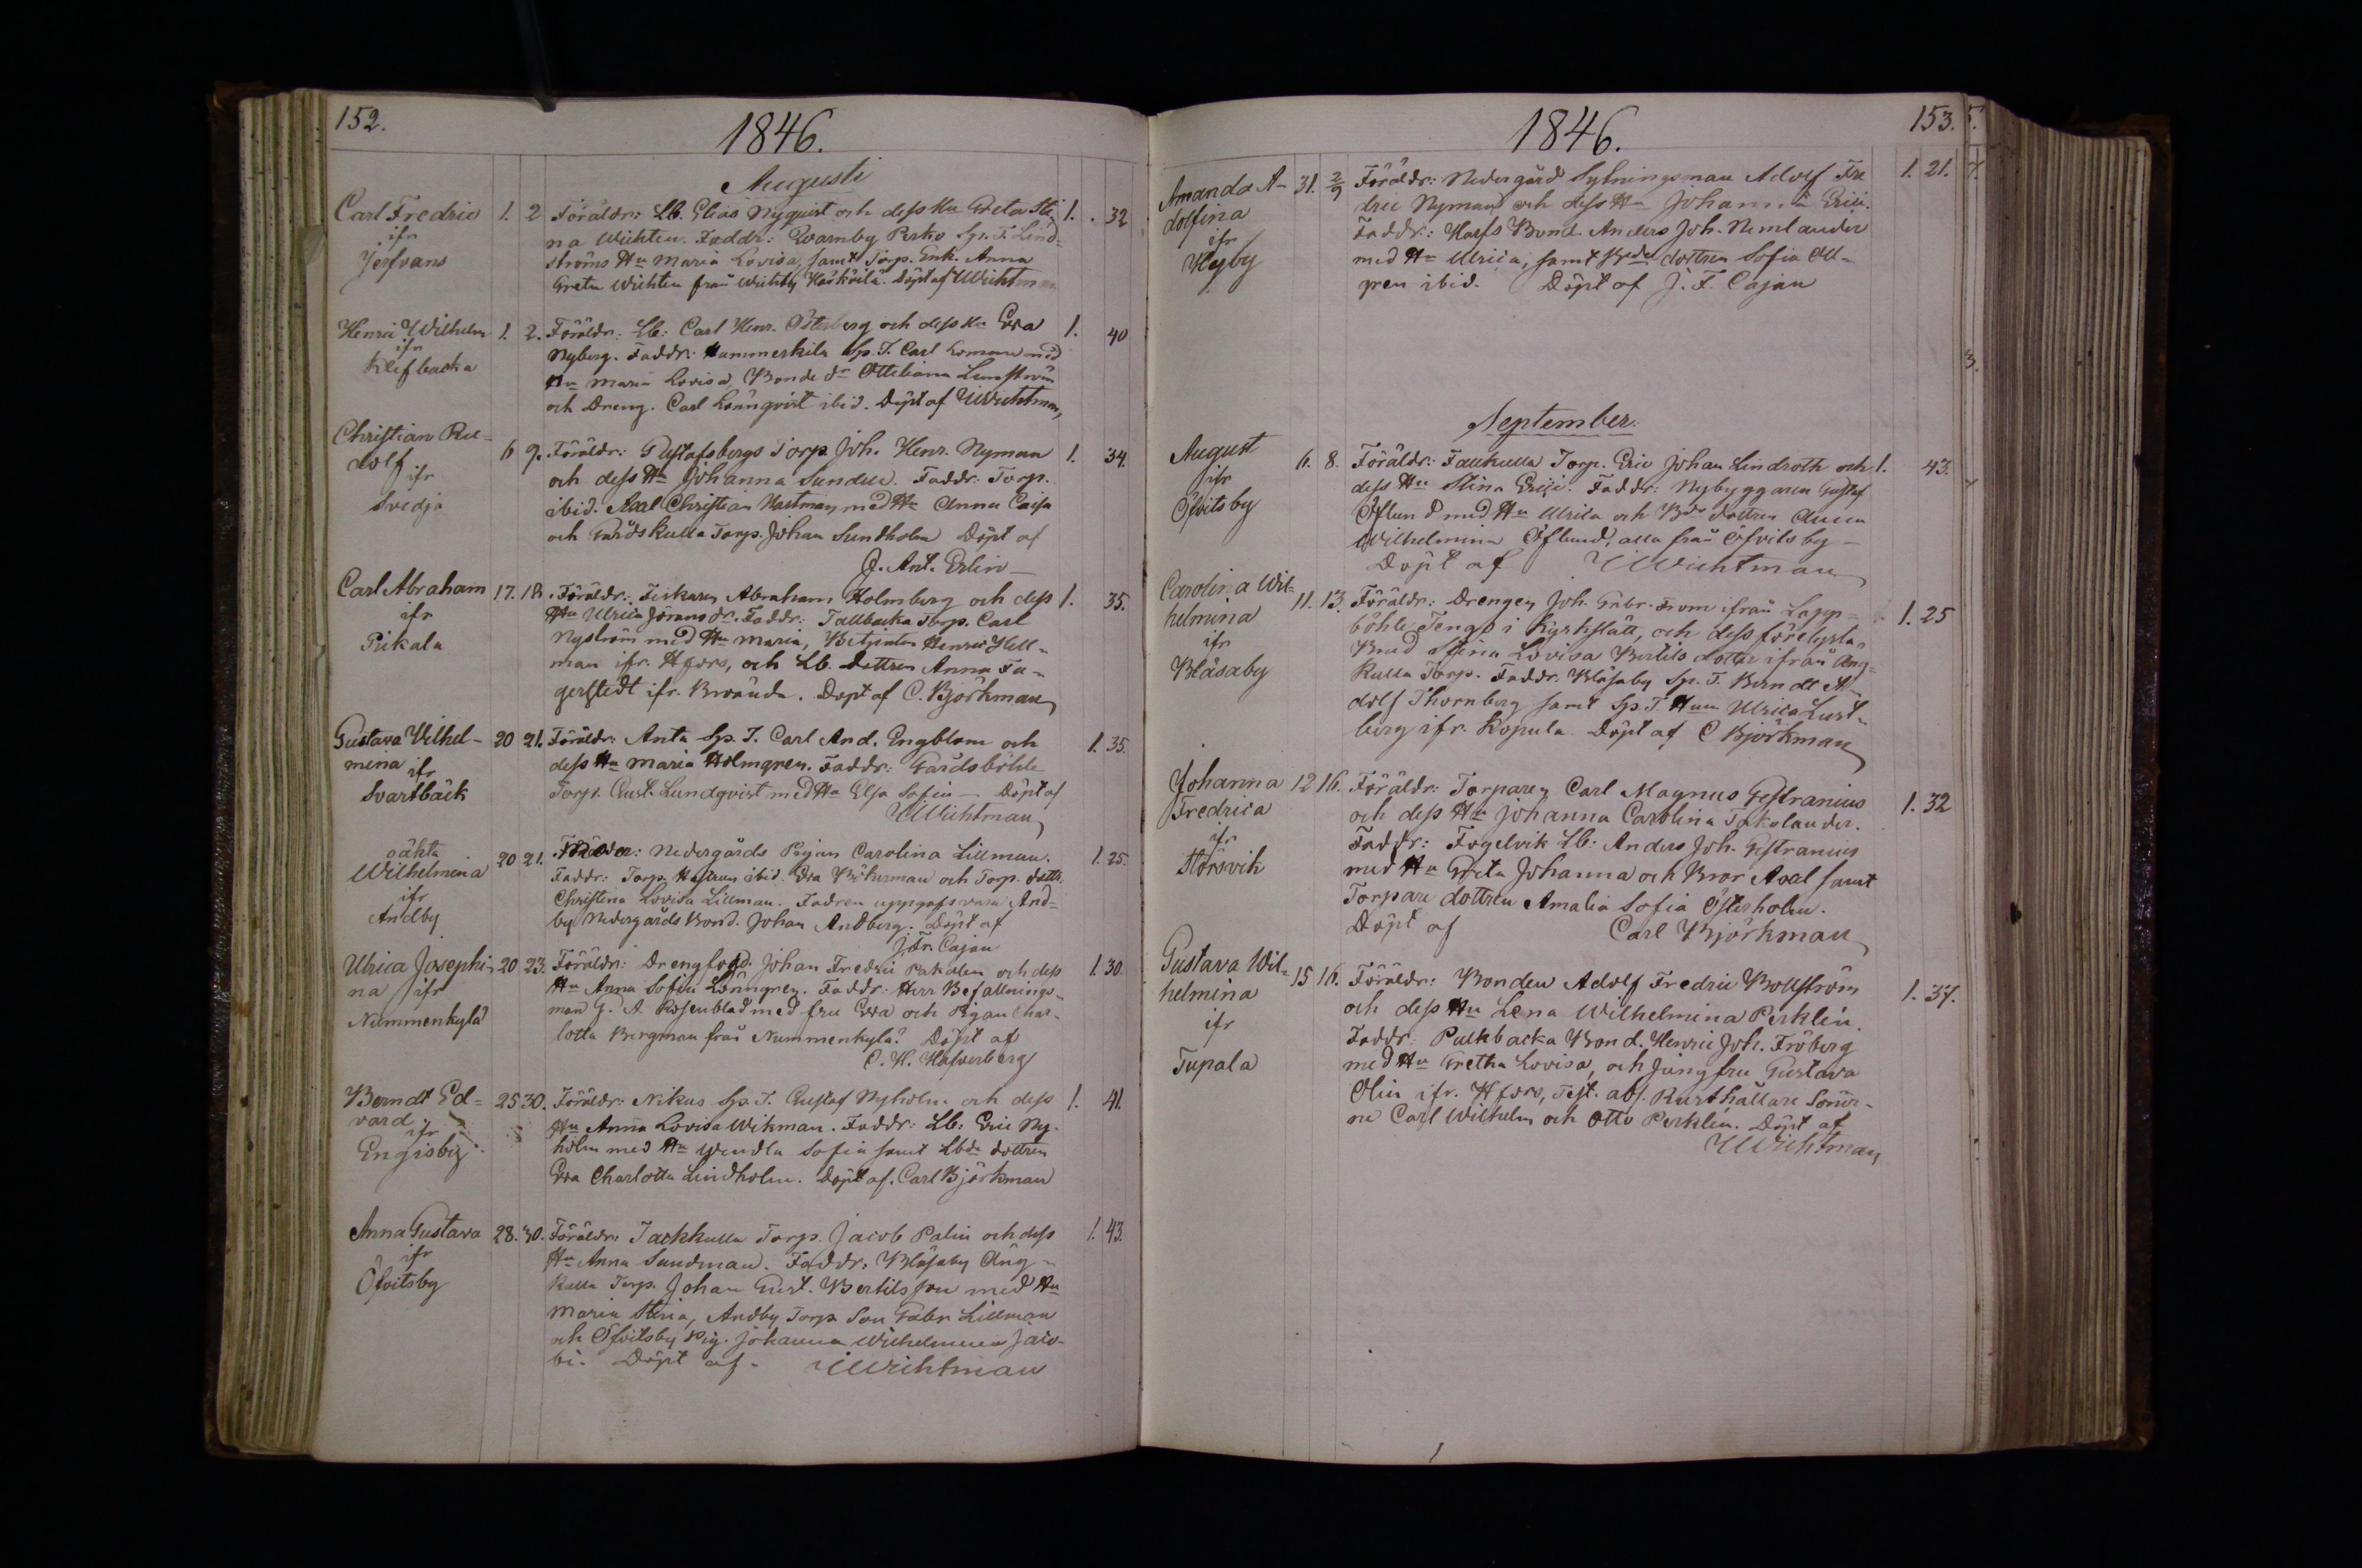 152.
1846.
Augusti
Carl Fredric 1. 2 Föräldr: Lb. Elias Nyquist och dess Hu Greta Sti- 1. 32
ifr na Wichten. Faddr: Qvarnby Perko Sp. T. Lind-
Jerfvans ströms Hu Maria Lovisa, samt Torp. Enk. Anna
Greta Wichten från Wichtby Döpt af Wichtman
Henric Wilhelm 1. 2. Föräldr: Lb: Carl Henr. Österberg och dess Hu Eva 1. 40
ifr Nyberg. Faddr: Hammerkila Sp. T. Carl Loman med
Klefbacka Hu Maria Lovisa, Bonde dr Ottiliana Lunström
och Dreng. Carl Lönnqvist ibid. Döpt af Wichtman
Christian Ru-
dolf 6 9. Föräldr: Gustafsbergs Torp. Joh. Henr. Nyman 1. 34.
ifr och dess Hu Johanna Sundell. Faddr: Torp.
Svedja ibid. Axel Christian Nastman med Hu Anna Caisa
och Gårdskulla Torp. Johan Sundholm Döpt af
J. Ant. Erlin
Carl Abraham 17. 18. Föräldr: Fiskaren Abraham Holmberg och dess 1. 35.
ifr Hu Ulrica Jöransdr. Faddr: Tallbacka Torp. Carl
Pikala Nyström med Hu Maria, Betjenten Henric Hell-
man ifr. Hfors, och Lb. dottren Anna Fa-
gerstedt ifr. Brända. Döpt af C. Björkman
Gustava Vilhel- 20 21. Föräldr: Anta Sp. T. Carl And. Engblom och 1. 35.
mina ifr dess Hu Maria Holmgren. Faddr: Gårdsböhle
Svartbäck Torp. Gust. Lundqvist med Hu Elsa Sofia — Döpt af
Wichtman
oäkta
Wilhelmina 20 21. Moder: Nedergårds Pigan Carolina Lillman. 1. 25.
ifr Faddr: Torp. Hustrun ibid. Eva Böhrman och Torp. dottr.
Andby Christina Lovisa Lillman. Fadren uppgafs vara And-
by Nedergårds Bond. Johan Andberg. Döpt af
J. Fr. Cajan
Ulrica Josephi- 20 23. Föräldr: Drengfogd. Johan Fredric och dess 1. 30.
na ifr Hu Anna Sofia Lönngren. Faddr: Herr Befallnings-
Nummenkylä man G. A. Rosenblad med fru Eva och Pigan Char-
lotta Bergman från Nummenkylä. Döpt af
C. H. Hafverberg
Berndt Ed- 25 30. Föräldr: Nikus Sp. T. Gustaf Nyholm och dess 1. 41.
vard Hu Anna Lovisa Wikman. Faddr: Lb: Eric Ny-
ifr holm med Hu Wendla Sofia samt Lbde dottren
Engisby Eva Charlotta Lindholm. Döpt af. Carl Björkman
Anna Gustava 28. 30. Föräldr: Jackkulla Torp. Jacob Palin och dess 1. 43.
ifr Hu Anna Sundman. Faddr: Blåsaby Äng-
Öfvitsby kulla Torp. Johan Gust. Bertilsson med Hu
Maria Stina, Andby Torp. Son Gabr. Lillman
och Öfvitsby Pig. Johanna Wilhelmina Jaco-
bi. Döpt af. Wichtman
1846. 153.
Amanda A- 31. 2/9 Föräldr: Nedergård Sytningsman Adolf Fre 1. 21.
dolfina dric Nyman och dess Hu Johanna Erici.
ifr Faddr: Bond. Anders Joh. Nemlander
Hyby med Hu Ulrica, samt dottren Sofia All-
gren ibid. Döpt af J. F. Cajan
September.
August 6. 8. Föräldr: Fallkulla Torp. Eric Johan Lindroth och 1. 43.
ifr dess Hu Stina Erici. Faddr: Nybyggaren Gustaf
Öfvitsby Öflund med Hu Ulrica och Bde dottren Anna
Wilhelmina Öflund, alla från Öfvitsby —
Döpt af Wichtman
Carolina Wil-
helmina 11. 13. Föräldr: Drengen Joh. Gabr. From ifrån Lapp- 1. 25
ifr böhle Tengo i Kyrkslätt, och dess förelysta
Blåsaby Brud Stina Lovisa Bertils dotter ifrån Äng-
kulla Torp. Faddr. Blåsaby Sp. T. Berndt A-
dolf Thornberg samt Sp. T. Hun Ulrica Lust-
berg ifr. Kopula. Döpt af C Björkman
Johanna 12 16. Föräldr: Torparen Carl Magnus Gestranius 1. 32
Fredrica och dess Hu Johanna Carolina Takolander.
ifr Faddr: Fogelvik Lb: Anders Joh. Gestranius
Störsvik med Hu Greta Johanna och Bror Axel samt
Torpare dottren Amalia Sofia Österholm.
Döpt af Carl Björkman
Gustava Wil- 15 16. Föräldr: Bonden Adolf Fredric Bollström 1. 37.
helmina och dess Hu Lena Wilhelmina Perklén.
ifr Faddr: Palkbacka Bond. Henric Joh. Fröberg
Tupala med Hu Gretha Lovisa, och Jungfru Gustava
Olin ifr. Hfors, Test. abs. Rusthållare Söner-
ne Carl Wilhelm och Otto Perklén. Döpt af
Wichtman